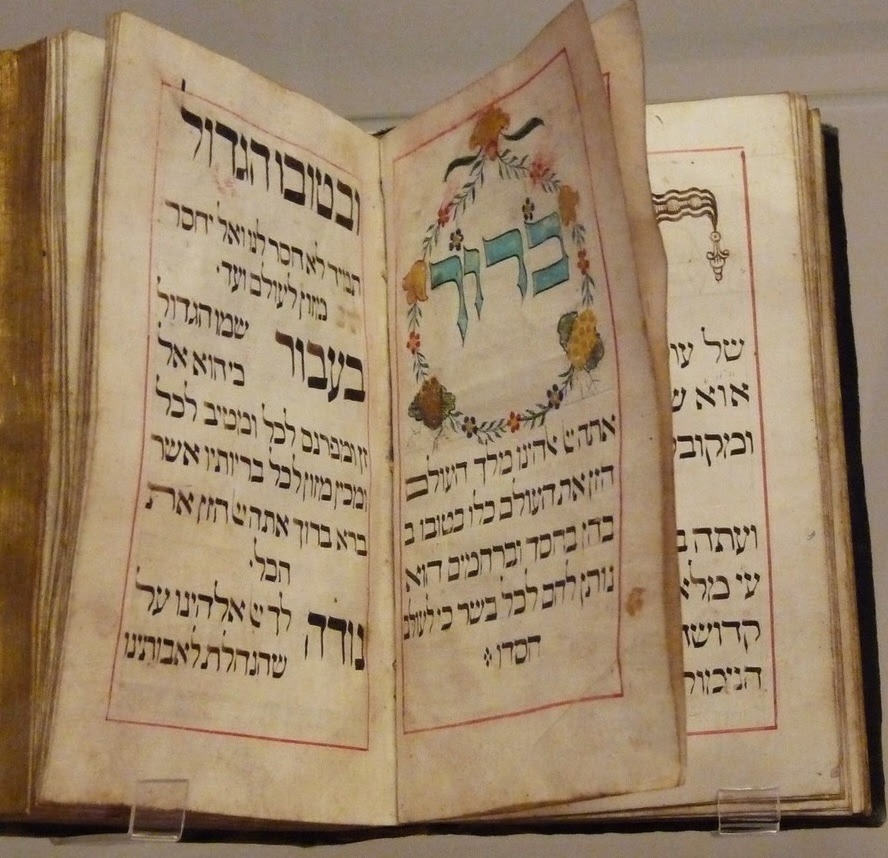 ברוך
אתה יי אהינו מלך העולם
הזן את העולם כלו בטובו ב
בחן בחסד וברחמים הוא
נותן לחם לכל בשר כי לעולם
חסדו
ובטובו הגדול
תמיד לא חסר לנו ואל יחסר
מזון לעולם ועד
בעבור שמו הגדול
כי הוא אל
זן ומפרנס לכל ומטיב לכל
ומכין מזון לכל בריותיו אשר
ברא ברוך אתה יי הזן את
הכל
נודה לך יי אלהינו על
שהנחלת לאבותינו
של
אוא
ומקובל
ועתה
עי מלא